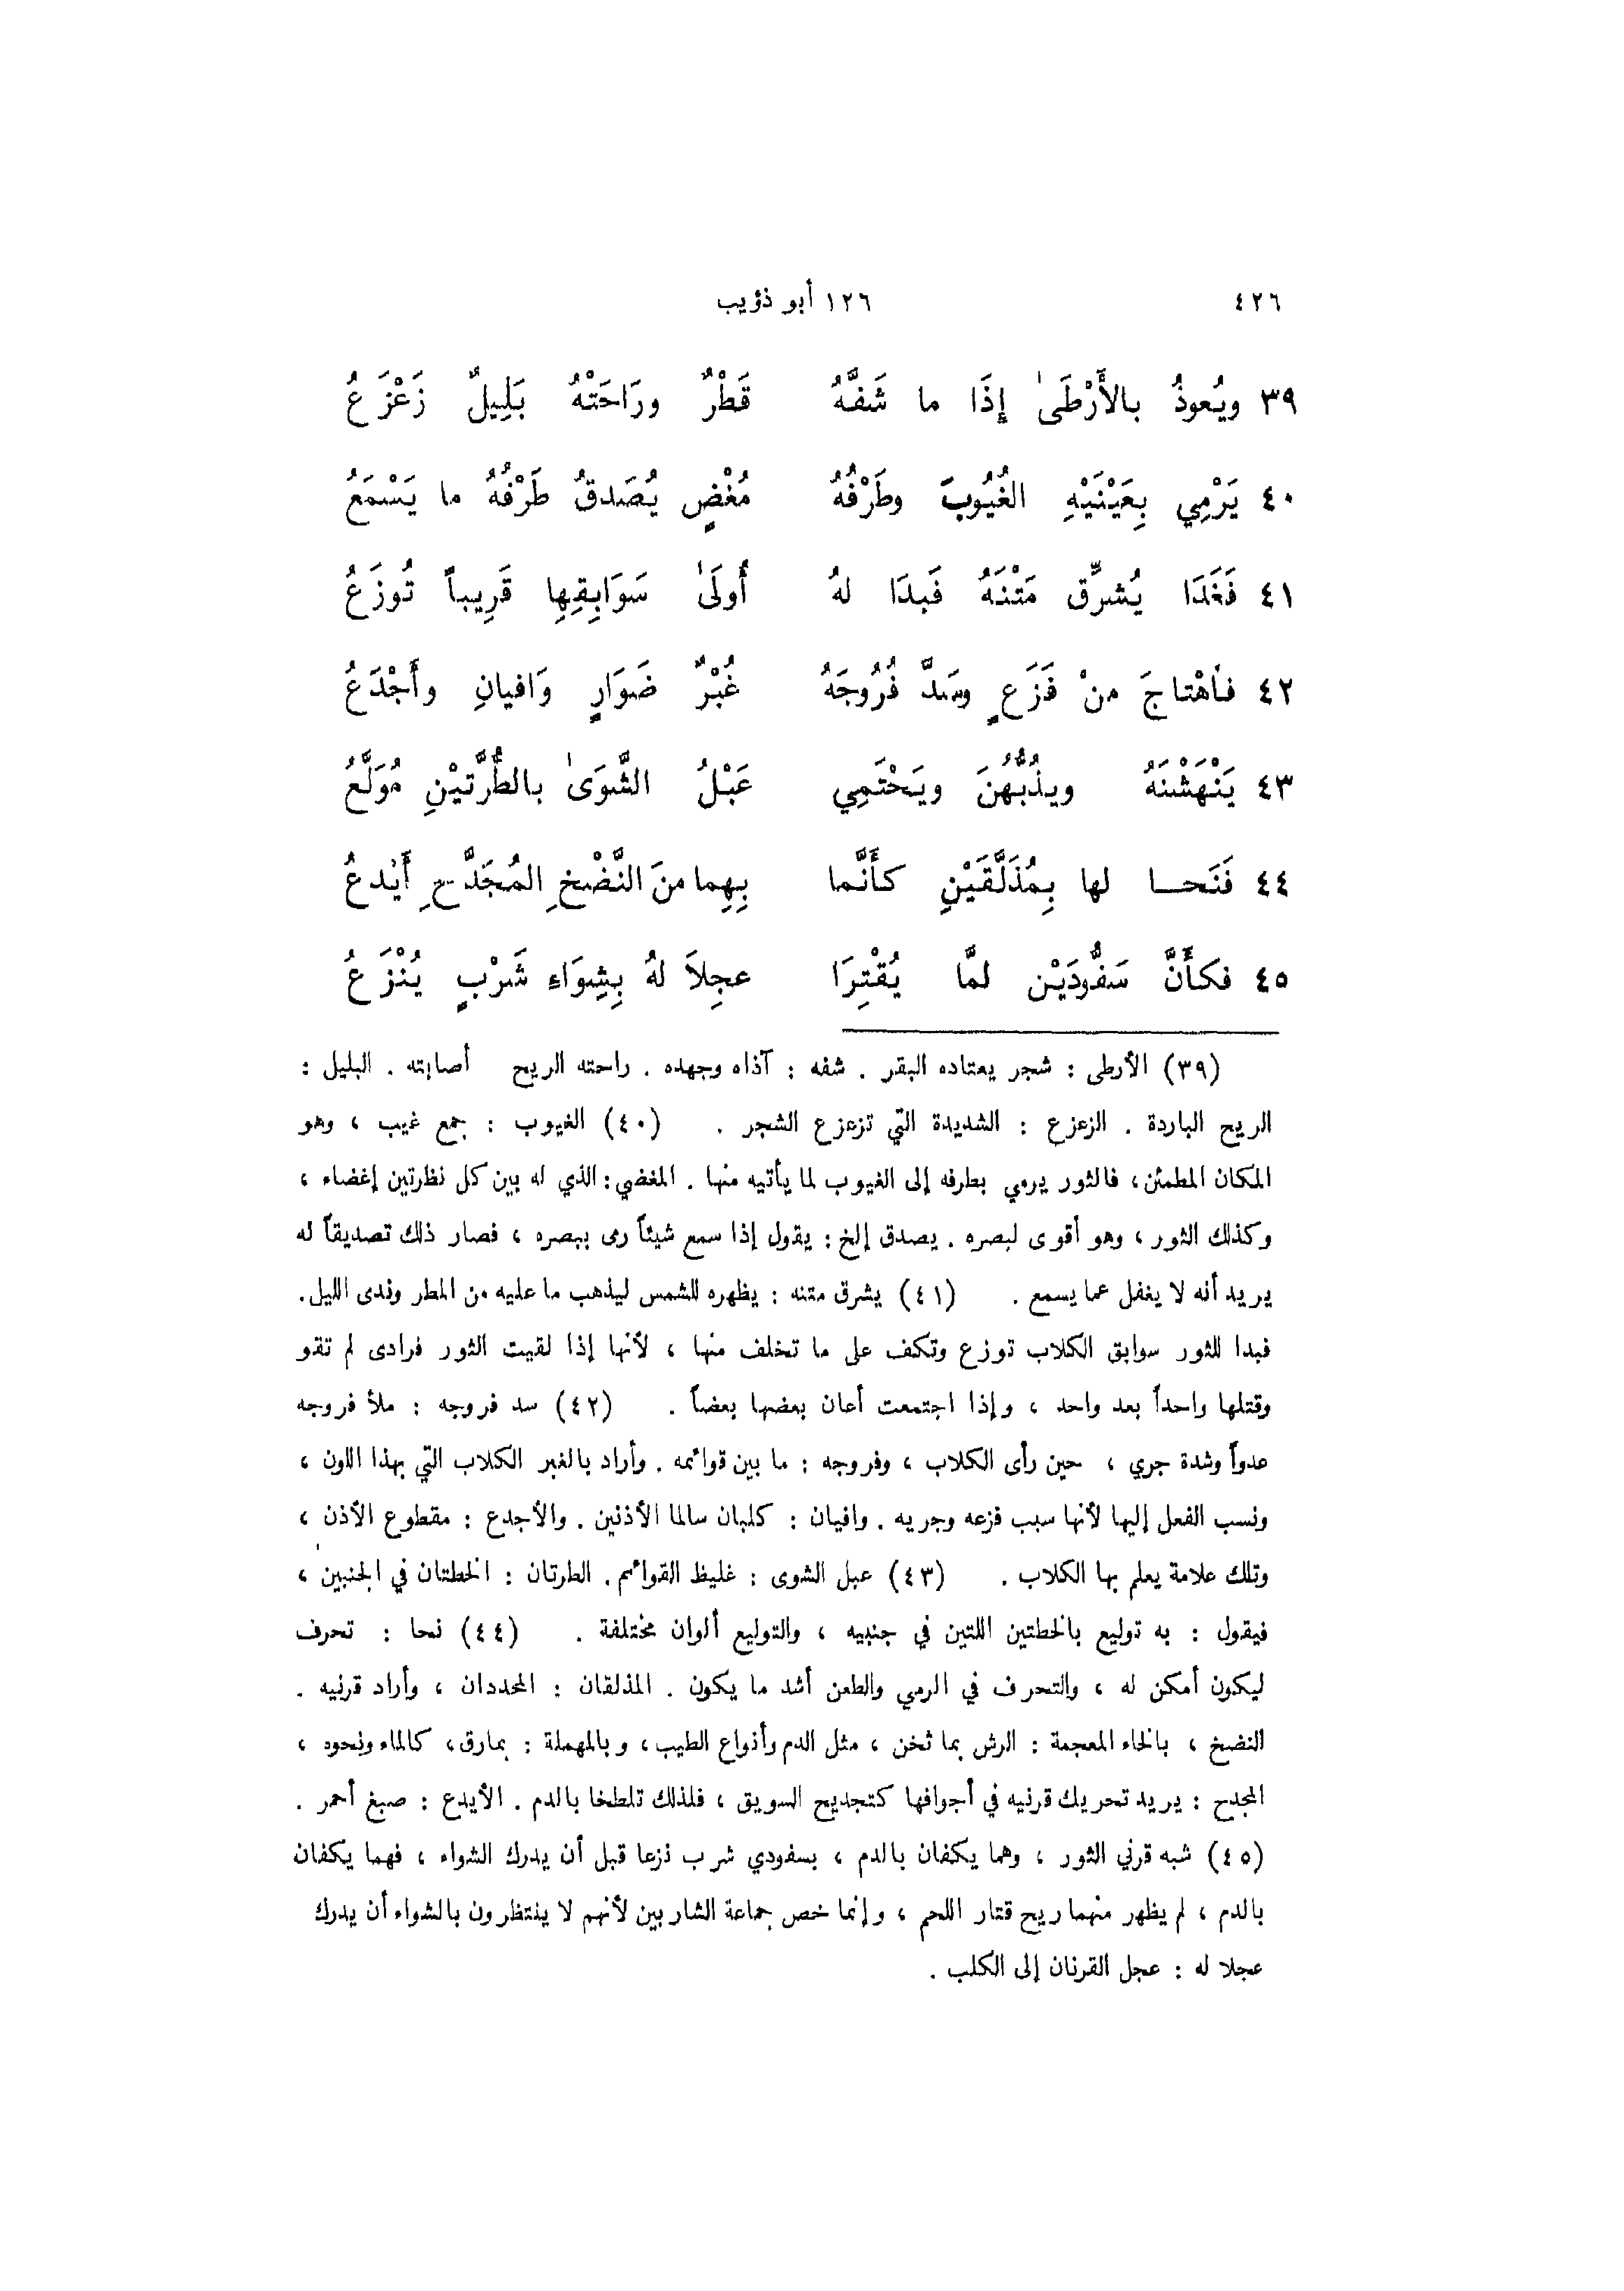 ٤٢٦ ١٢٦ أبو ذؤيب
٣٩ ويُعوذُ بالأَرْطَىٰ إِذَا ما شَفَّهُ قَطْرٌ ورَاحَتْهُ بَلِيلٌ زَعْزَعُ
٤٠ يَرْمِي بِعَيْنَيْهِ الغُيُوبَ وطَرْفُهُ مُغْضٍ يُصَدقُ طَرْفُهُ ما يَسْمَعُ
٤١ فَغَدَا يُشرِّق مَتْنَهُ فَبدَا لهُ أُولَىٰ سَوَابِقِهِا قَرِيباً تُوزَعُ
٤٢ فاَهْتاجَ منْ فَزَعٍ وسَدَّ فُرُوجَهُ غُبْرٌ ضَوَارٍ وَافيانِ وأَجْدَعُ
٤٣ يَنْهَشْنَهُ ويذُبُّهُنَ ويَحْتَمِي عَبْلُ الشَّوَىٰ بالطُّرَّتيْنِ مُوَلَّعُ
٤٤ فَنَحا لها بِمُذَلَّقَيْنِ كأَنَّما بِهِما منَ النَّضْخِ المُجَدَّحِ أَيْدعُ
٤٥ فكأَنَّ سَفُّودَيْن لمَّا يُقْتِرَا عجِلاَ لهُ بِشِوَاءِ شَرْبٍ يُنْزَعُ
(٣٩) الأرطى : شجر يعتاده البقر . شفه : آذاه وجهده . راحته الريح أصابته . البليل :
الريح الباردة . الزعزع : الشديدة التي تزعزع الشجر . (٤٠) الغيوب : جمع غيب ، وهو
المكان المطمئن، فالثور يرمي بطرفه إلى الغيوب لما يأتيه منها . المغضي: الذي له بين كل نظرتين إغضاء ،
وكذلك الثور ، وهو أقوى لبصره . يصدق إلخ : يقول إذا سمع شيئاً رمى ببصره ، فصار ذلك تصديقاً له
يريد أنه لا يغفل عما يسمع . (٤١) يشرق متنه : يظهره للشمس ليذهب ما عليه من المطر وندى الليل.
فبدا للثور سوابق الكلاب توزع وتكف على ما تخلف منها ، لأنها إذا لقيت الثور فرادى لم تقو
وقتلها واحداً بعد واحد ، وإذا اجتمعت أعان بعضها بعضاً . (٤٢) سد فروجه : ملأ فروجه
عدواً وشدة جري ، حين رأى الكلاب ، وفروجه : ما بين قوائمه . وأراد بالغبر الكلاب التي بهذا اللون ،
ونسب الفعل إليها لأنها سبب فزعه وجريه . وافيان : كلبان سالما الأذنين . والأجدع : مقطوع الأذن ،
وتلك علامة يعلم بها الكلاب . (٤٣) عبل الشوى : غليظ القوائم . الطرتان : الخطتان في الجنبين ،
فيقول : به توليع بالخطتين اللتين في جنبيه ، والتوليع ألوان مختلفة . (٤٤) نحا : تحرف
ليكون أمكن له ، والتحرف في الرمي والطعن أشد ما يكون . المذلقان : المحددان ، وأراد قرنيه .
النضخ ، بالخاء المعجمة : الرش بما ثخن ، مثل الدم وأنواع الطيب، وبالمهملة : بمارق، كالماء ونحوه ،
المجدح : يريد تحريك قرنيه في أجوافها كتجديح السويق ، فلذلك تلطخا بالدم . الأيدع : صبغ أحمر .
(٤٥) شبه قرني الثور ، وهما يكفان بالدم ، بسفودي شرب نزعا قبل أن يدرك الشواء ، فهما يكفان
بالدم ، لم يظهر منهما ريح قتار اللحم ، وإنما خص جماعة الشاربين لأنهم لا ينتظرون بالشواء أن يدرك
عجلا له : عجل القرنان إلى الكلب .